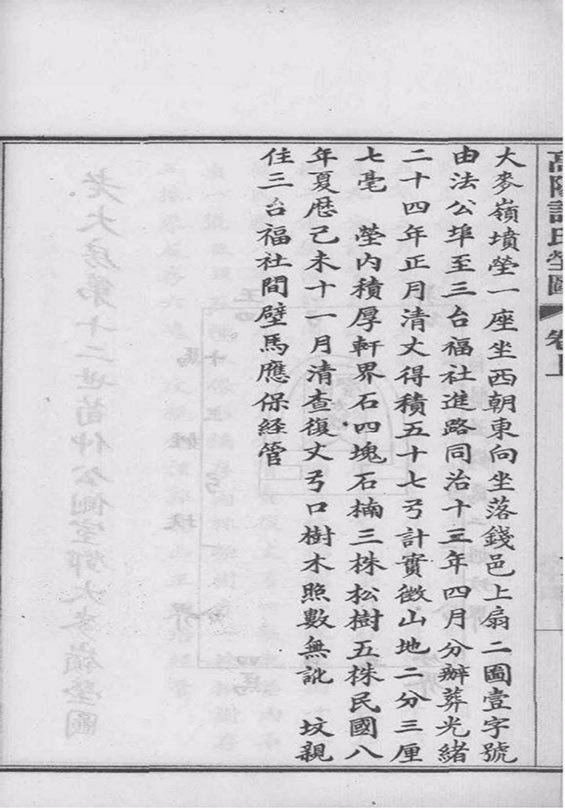 高陽許氏塋圖 卷上
大麥嶺墳塋一座坐西朝東向坐落錢邑上扇二圖壹字號
由法公埠至三台福社進路同治十三年四月分辦葬光緒
二十四年正月清丈得積五十七弓計實徵山地二分三厘
七毫 塋內積厚軒界石四塊石楠三株松樹五株民國八
年夏歷己未十一月清查復丈弓口樹木照數無訛 坟親
住三台福社間壁馬應保經管